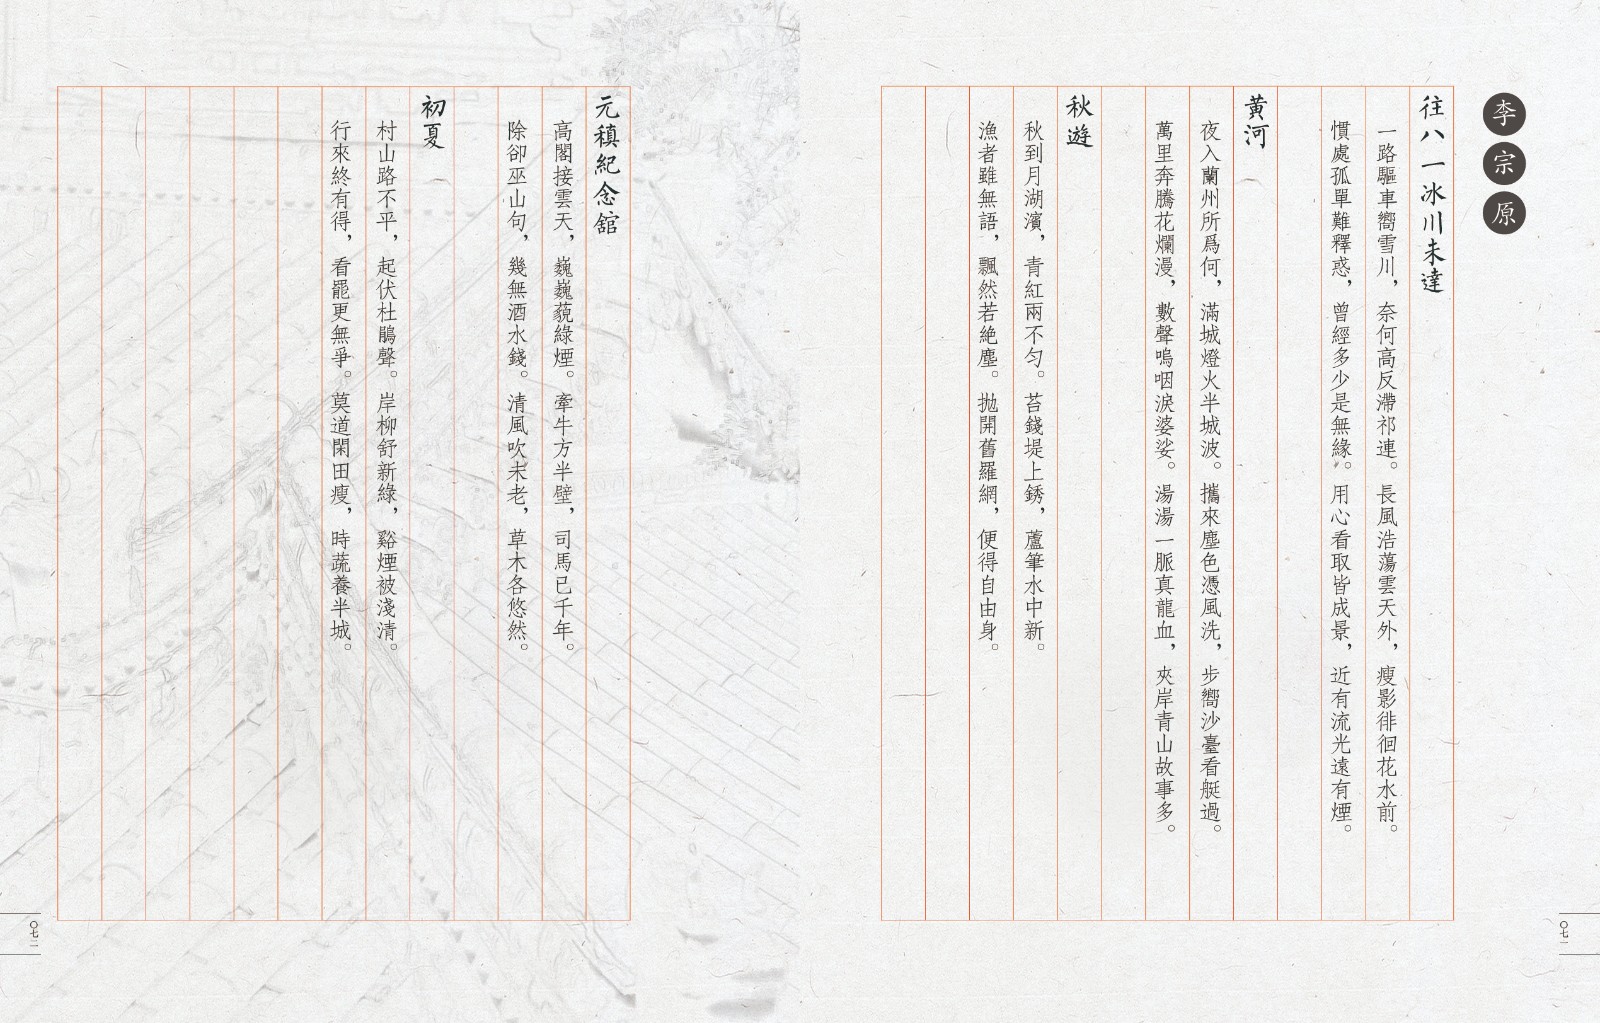 李宗原
往八一冰川未達
一路驅車嚮雪川，奈何高反滯祁連。長風浩蕩雲天外，瘦影徘徊花水前。
慣處孤單難釋惑，曾經多少是無緣。用心看取皆成景，近有流光遠有煙。
黃河
夜入蘭州所爲何，滿城燈火半城波。攜來塵色憑風洗，步嚮沙臺看艇過。
萬里奔騰花爛漫，數聲嗚咽淚婆娑。湯湯一脈真龍血，夾岸青山故事多。
秋遊
秋到月湖濱，青紅兩不勻。苔錢堤上銹，蘆筆水中新。
漁者雖無語，飄然若絶塵。拋開舊羅網，便得自由身。
〇七一
元稹紀念舘
高閣接雲天，巍巍藐綠煙。牽牛方半壁，司馬已千年。
除卻巫山句，幾無酒水錢。清風吹未老，草木各悠然。
初夏
村山路不平，起伏杜鵑聲。岸柳舒新綠，谿煙被淺清。
行來終有得，看罷更無爭。莫道閑田瘦，時蔬養半城。
〇七二